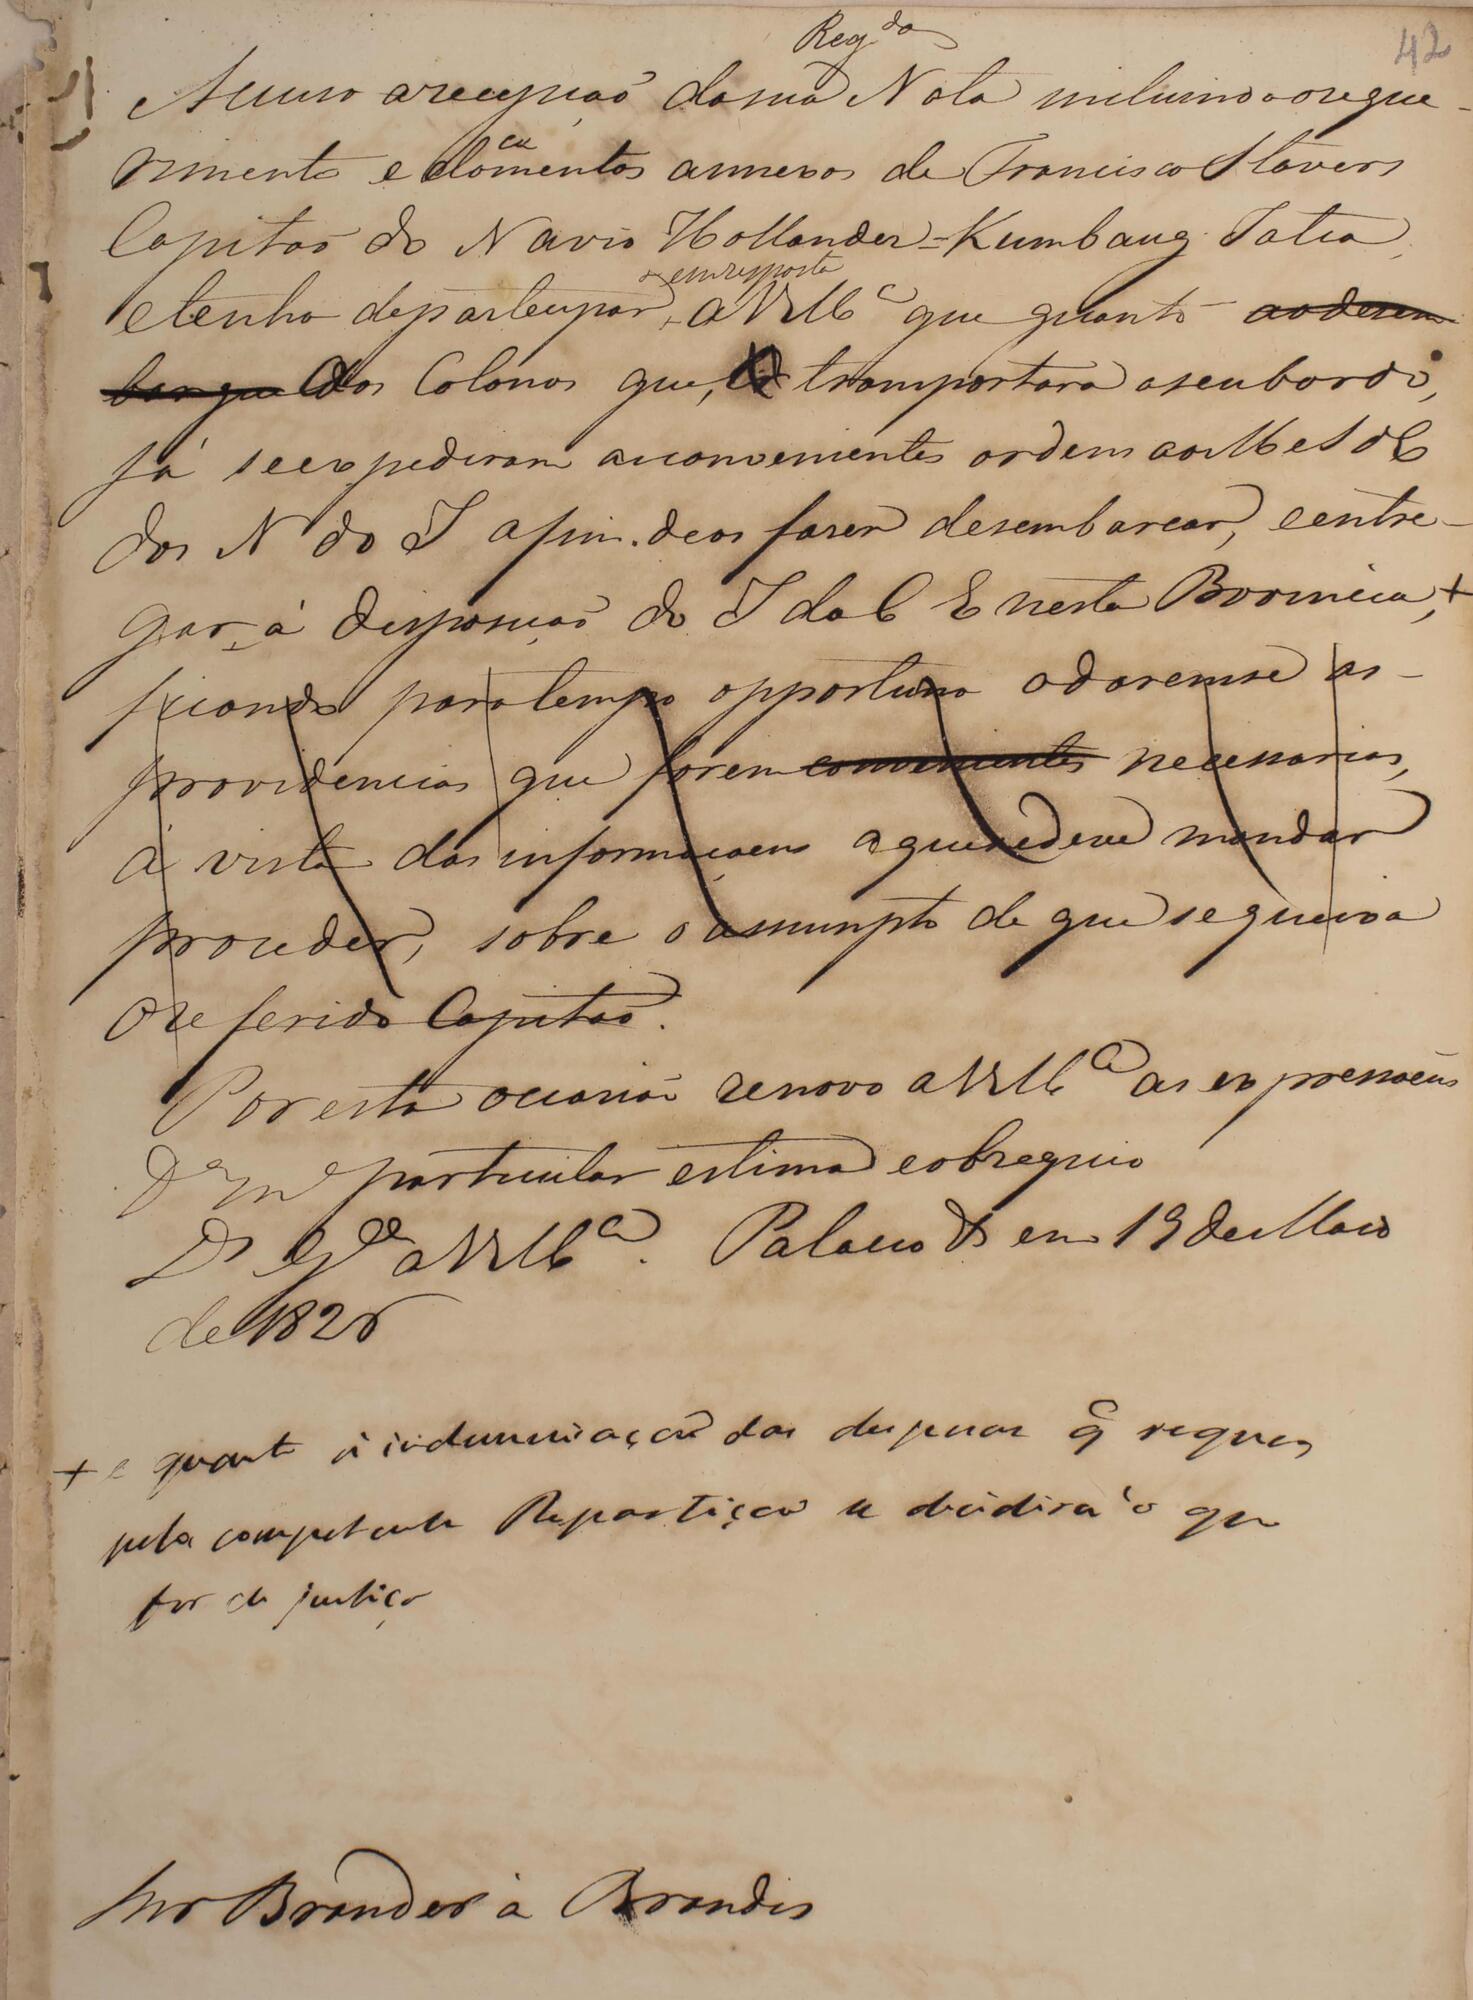 Reg.do
42
Accuso a recepção da sua Nota incluindo o reque-
rimento e documentos annexos de Francisco Stavers
Capitão do Navio Hollander = Kumbang Jatia,
e tenho de participar, em resposta a V Mce que quanto ao desem
barque dos Colonos que, transportara a seu bordo,
já se expediram as convenientes ordens ao M e S d E
dos N do I afim de os fazer desembarcar, e entre-
gar á disposição do I da C E nesta Provincia, +
ficando para tempo opportuno o darem-se as
providencias que forem convenientes necessarias,
á vista das informaçoens a que se deve mandar
proceder, sobre o assumpto de que se queixa
o referido Capitão.
Por esta occasião renovo a V Mce as expressoens
Da me particular estima e obsequio
Ds Gde a V Mce. Palacio em 19 de Maio
de 1828
+ e quanto á indemnização das despezas q requer,
pela competente Repartição se decidirá o que
for de justiça
Snr Brander à Brandis